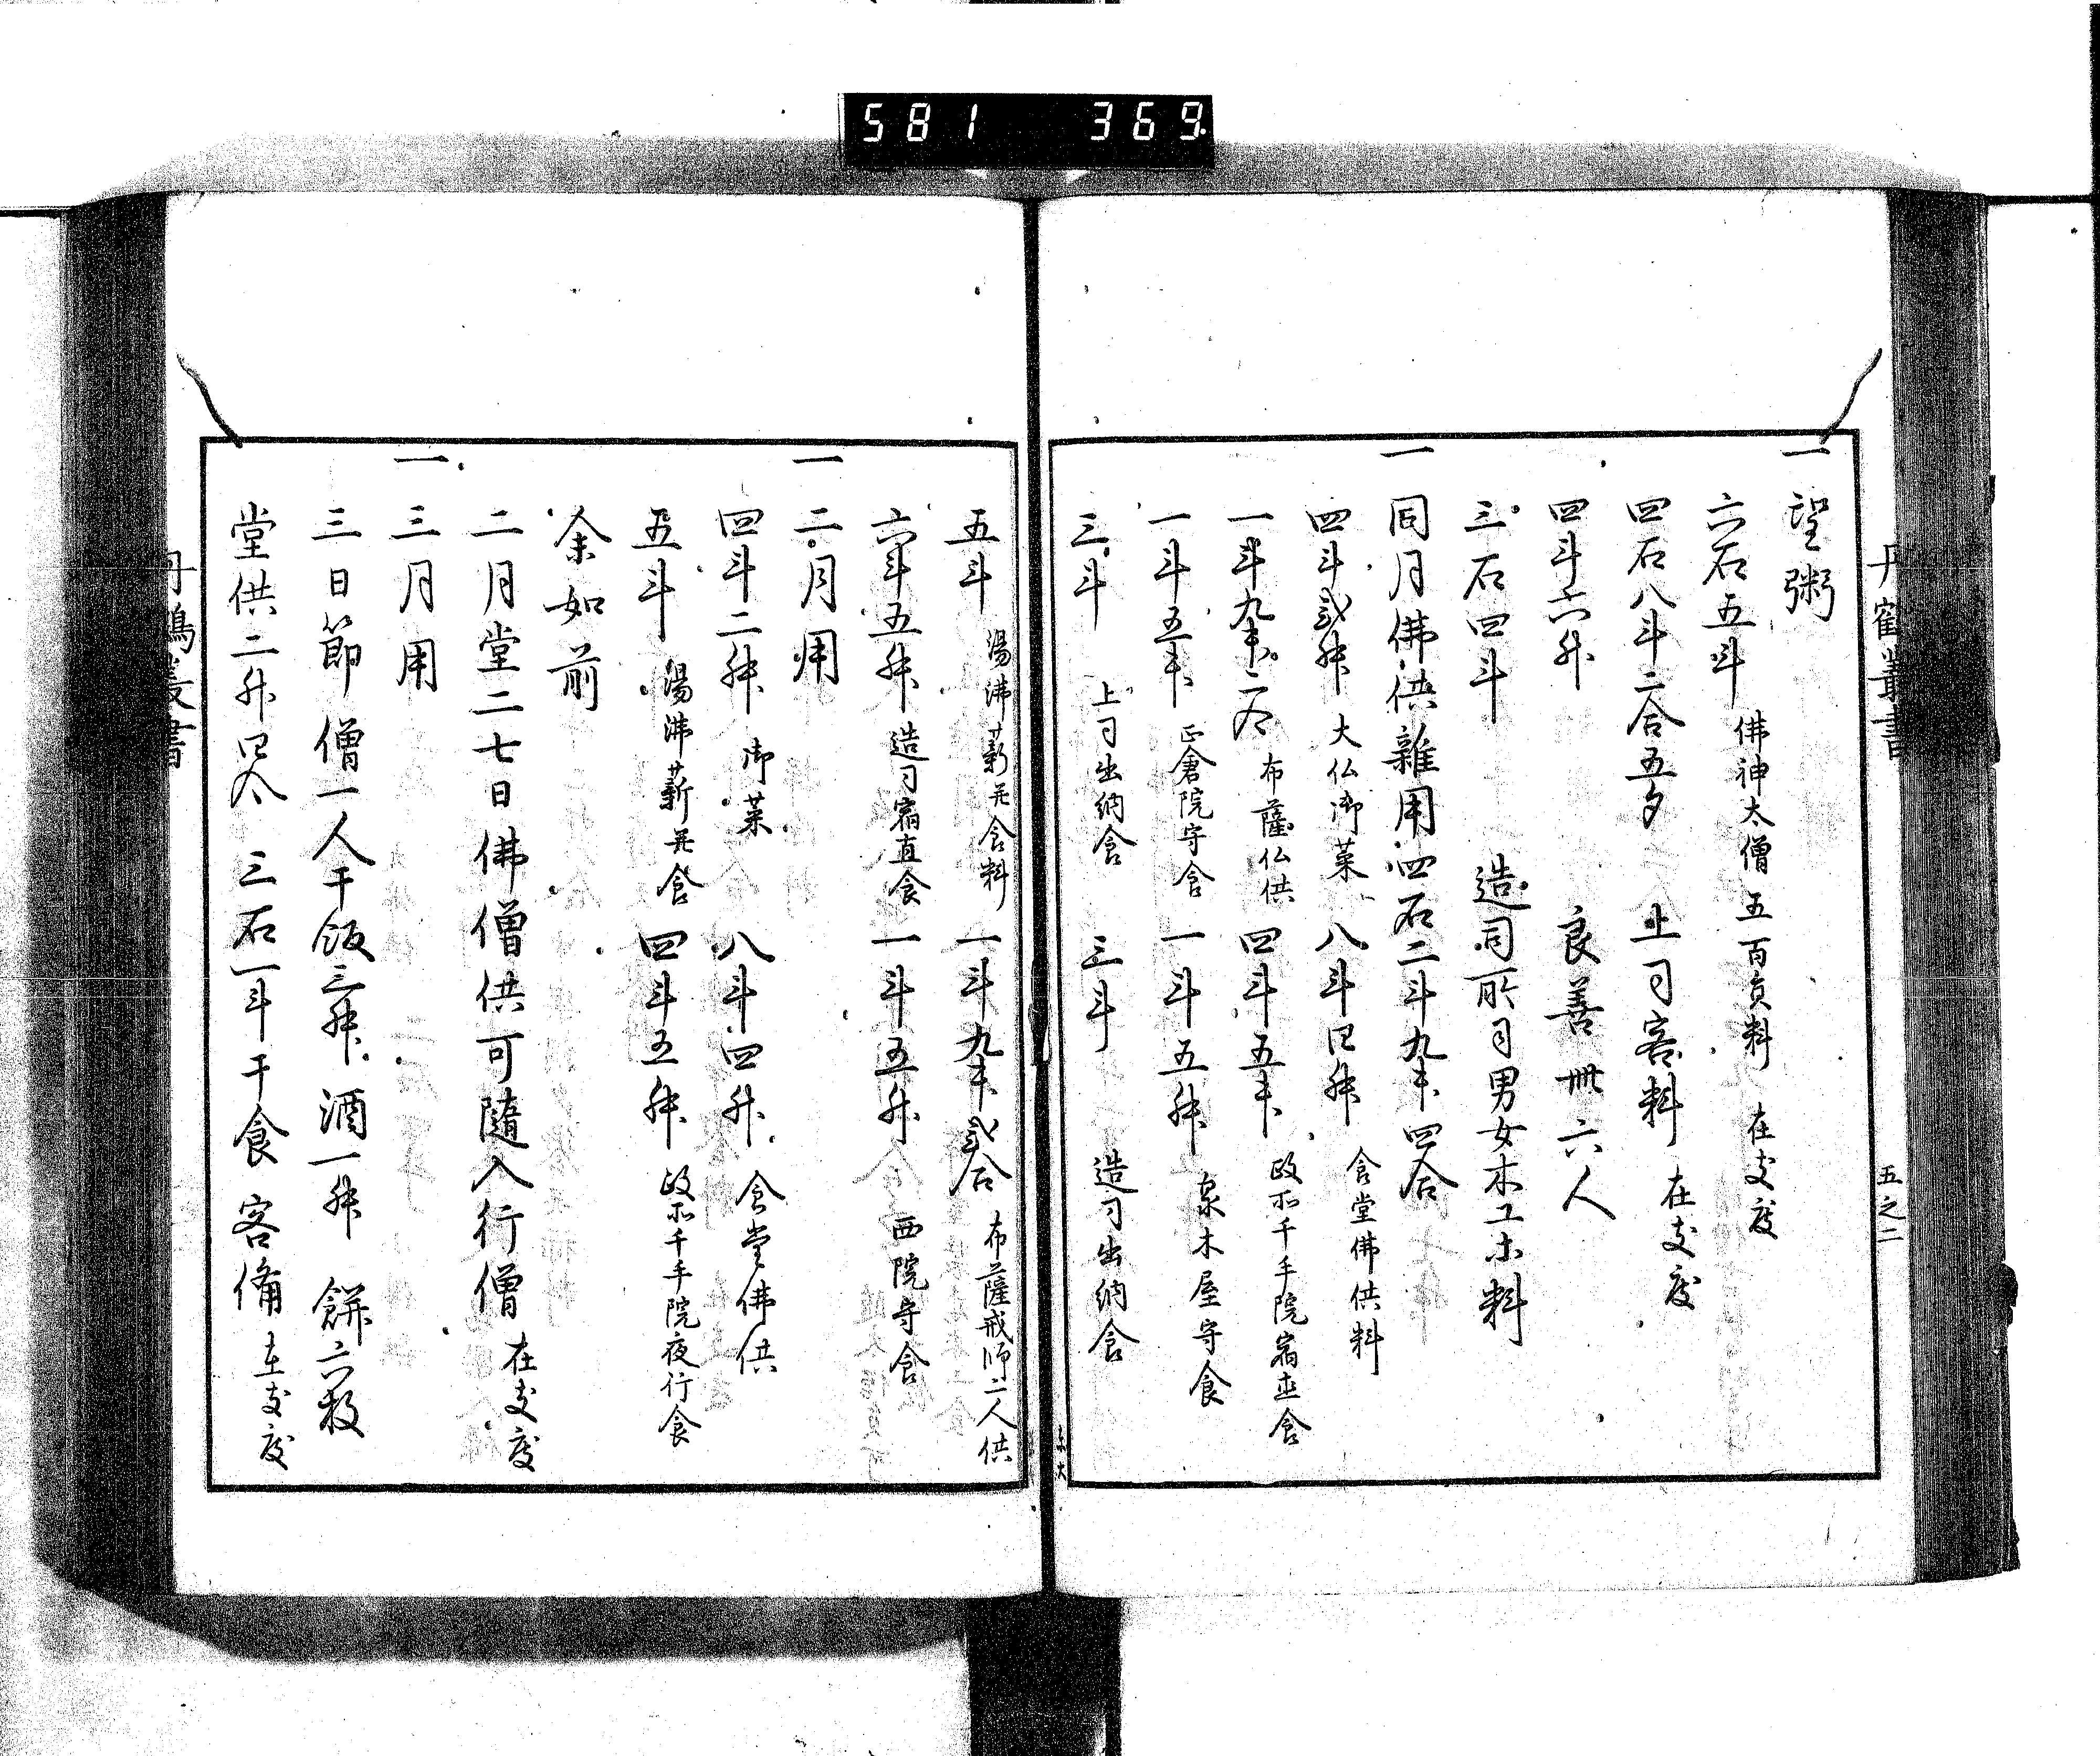 581 369
丹鶴叢書
五之二
一 望粥
六石五斗 佛神大僧五百員料 在支度
四石八斗二合五夕 上司客料 在支度
四斗六升 良善卌六人
三石四斗 造司所司男女木工等料
一 同月佛供雜用四石二斗九升四合
四斗貳升 大仏御菜 八斗四升 食堂佛供料
一斗九升二合 布薩仏供 四斗五升 政所千手院宿直食
一斗五升 正倉院守食 一斗五升 泉木屋守食
三斗 上司出納食 三斗 造司出納食
五斗 湯沸薪并食料 一斗九升貳合 布薩戒師二人供
六斗五升 造司宿直食 一斗五升 西院守食
一 二月用
四斗二升 御菜 八斗四升 食堂佛供
五斗 湯沸薪并食 四斗五升 政所千手院夜行食
余如前
二月堂二七日佛僧供可隨入行僧 在支度
一 三月用
三日節僧一人干飯三升 酒一升 餅六枚
堂供二升四合 三石一斗干食 客備 在支度
丹鶴叢書